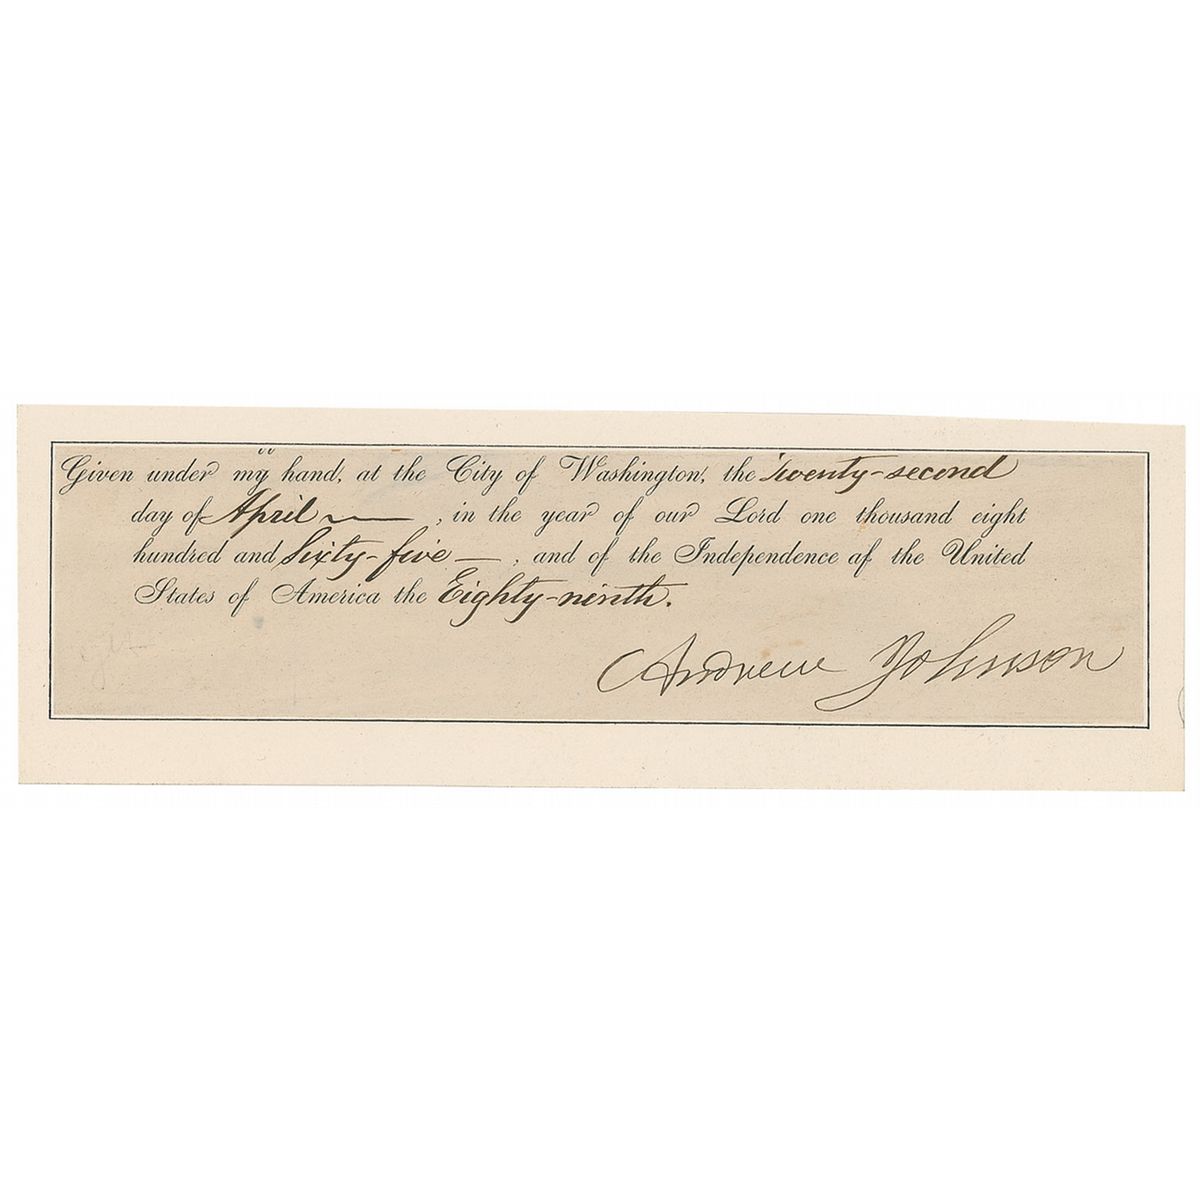 Given under my hand, at the City of Washington, the Twenty-second
day of April, in the year of our Lord one thousand eight
hundred and Sixty-five, and of the Independence of the United
States of America the Eighty-ninth.
Andrew Johnson